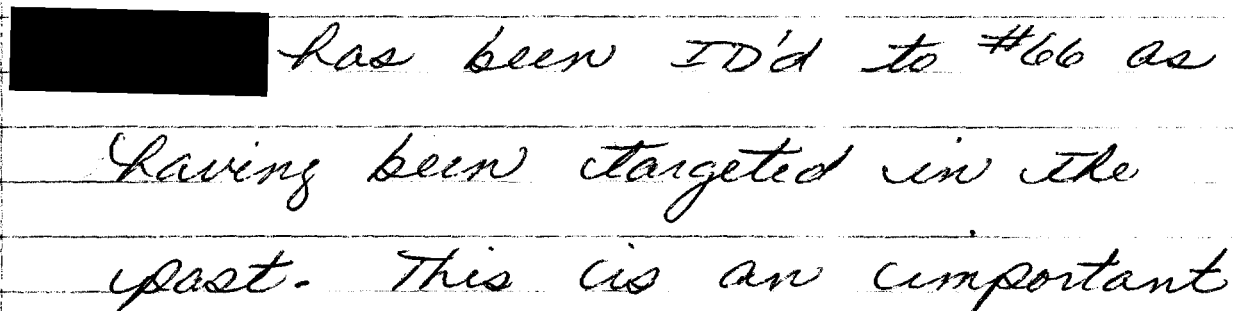 has been ID'd to #66 as
having been targeted in the
past. This is an important